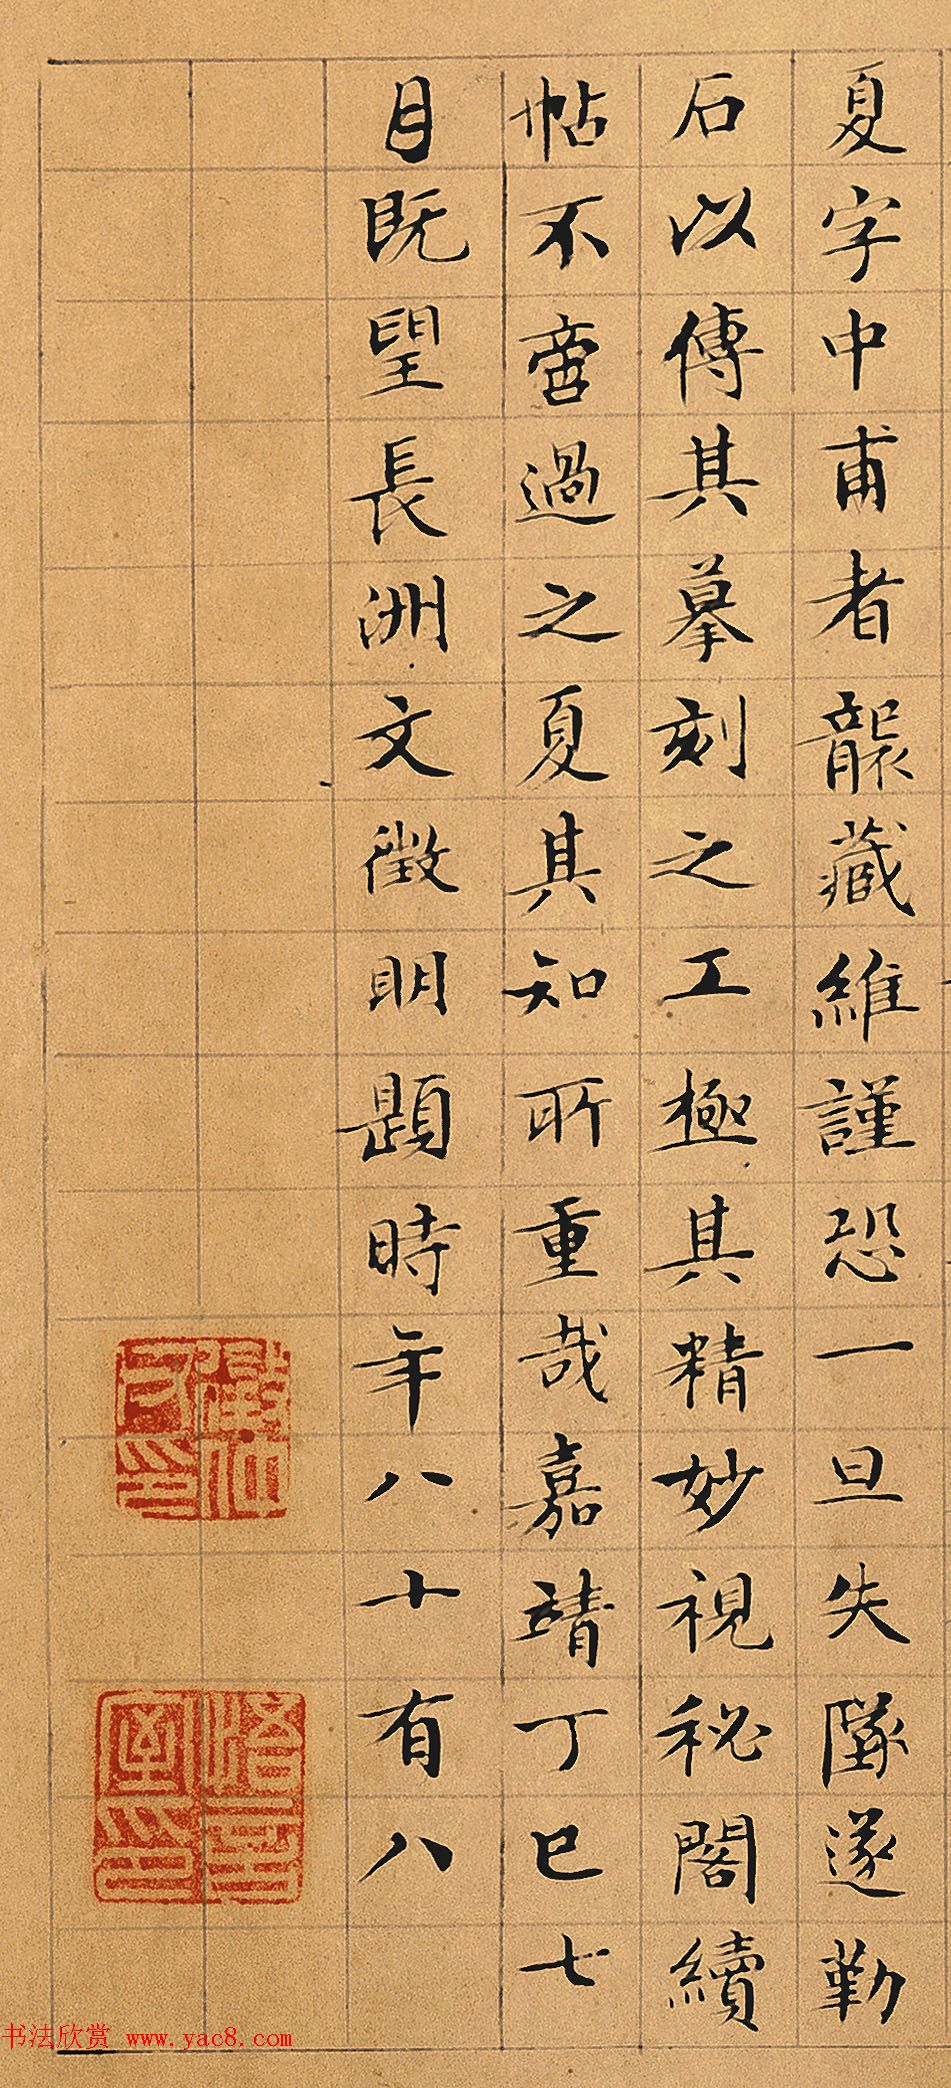 夏字中甫者龔藏維謹恐一旦失墜遂勒
石以傳其摹刻之工極其精妙視秘閣續
帖不啻過之夏其知所重哉嘉靖丁巳七
月既望長洲文徵明題時年八十有八
書法欣赏 www.yac8.com